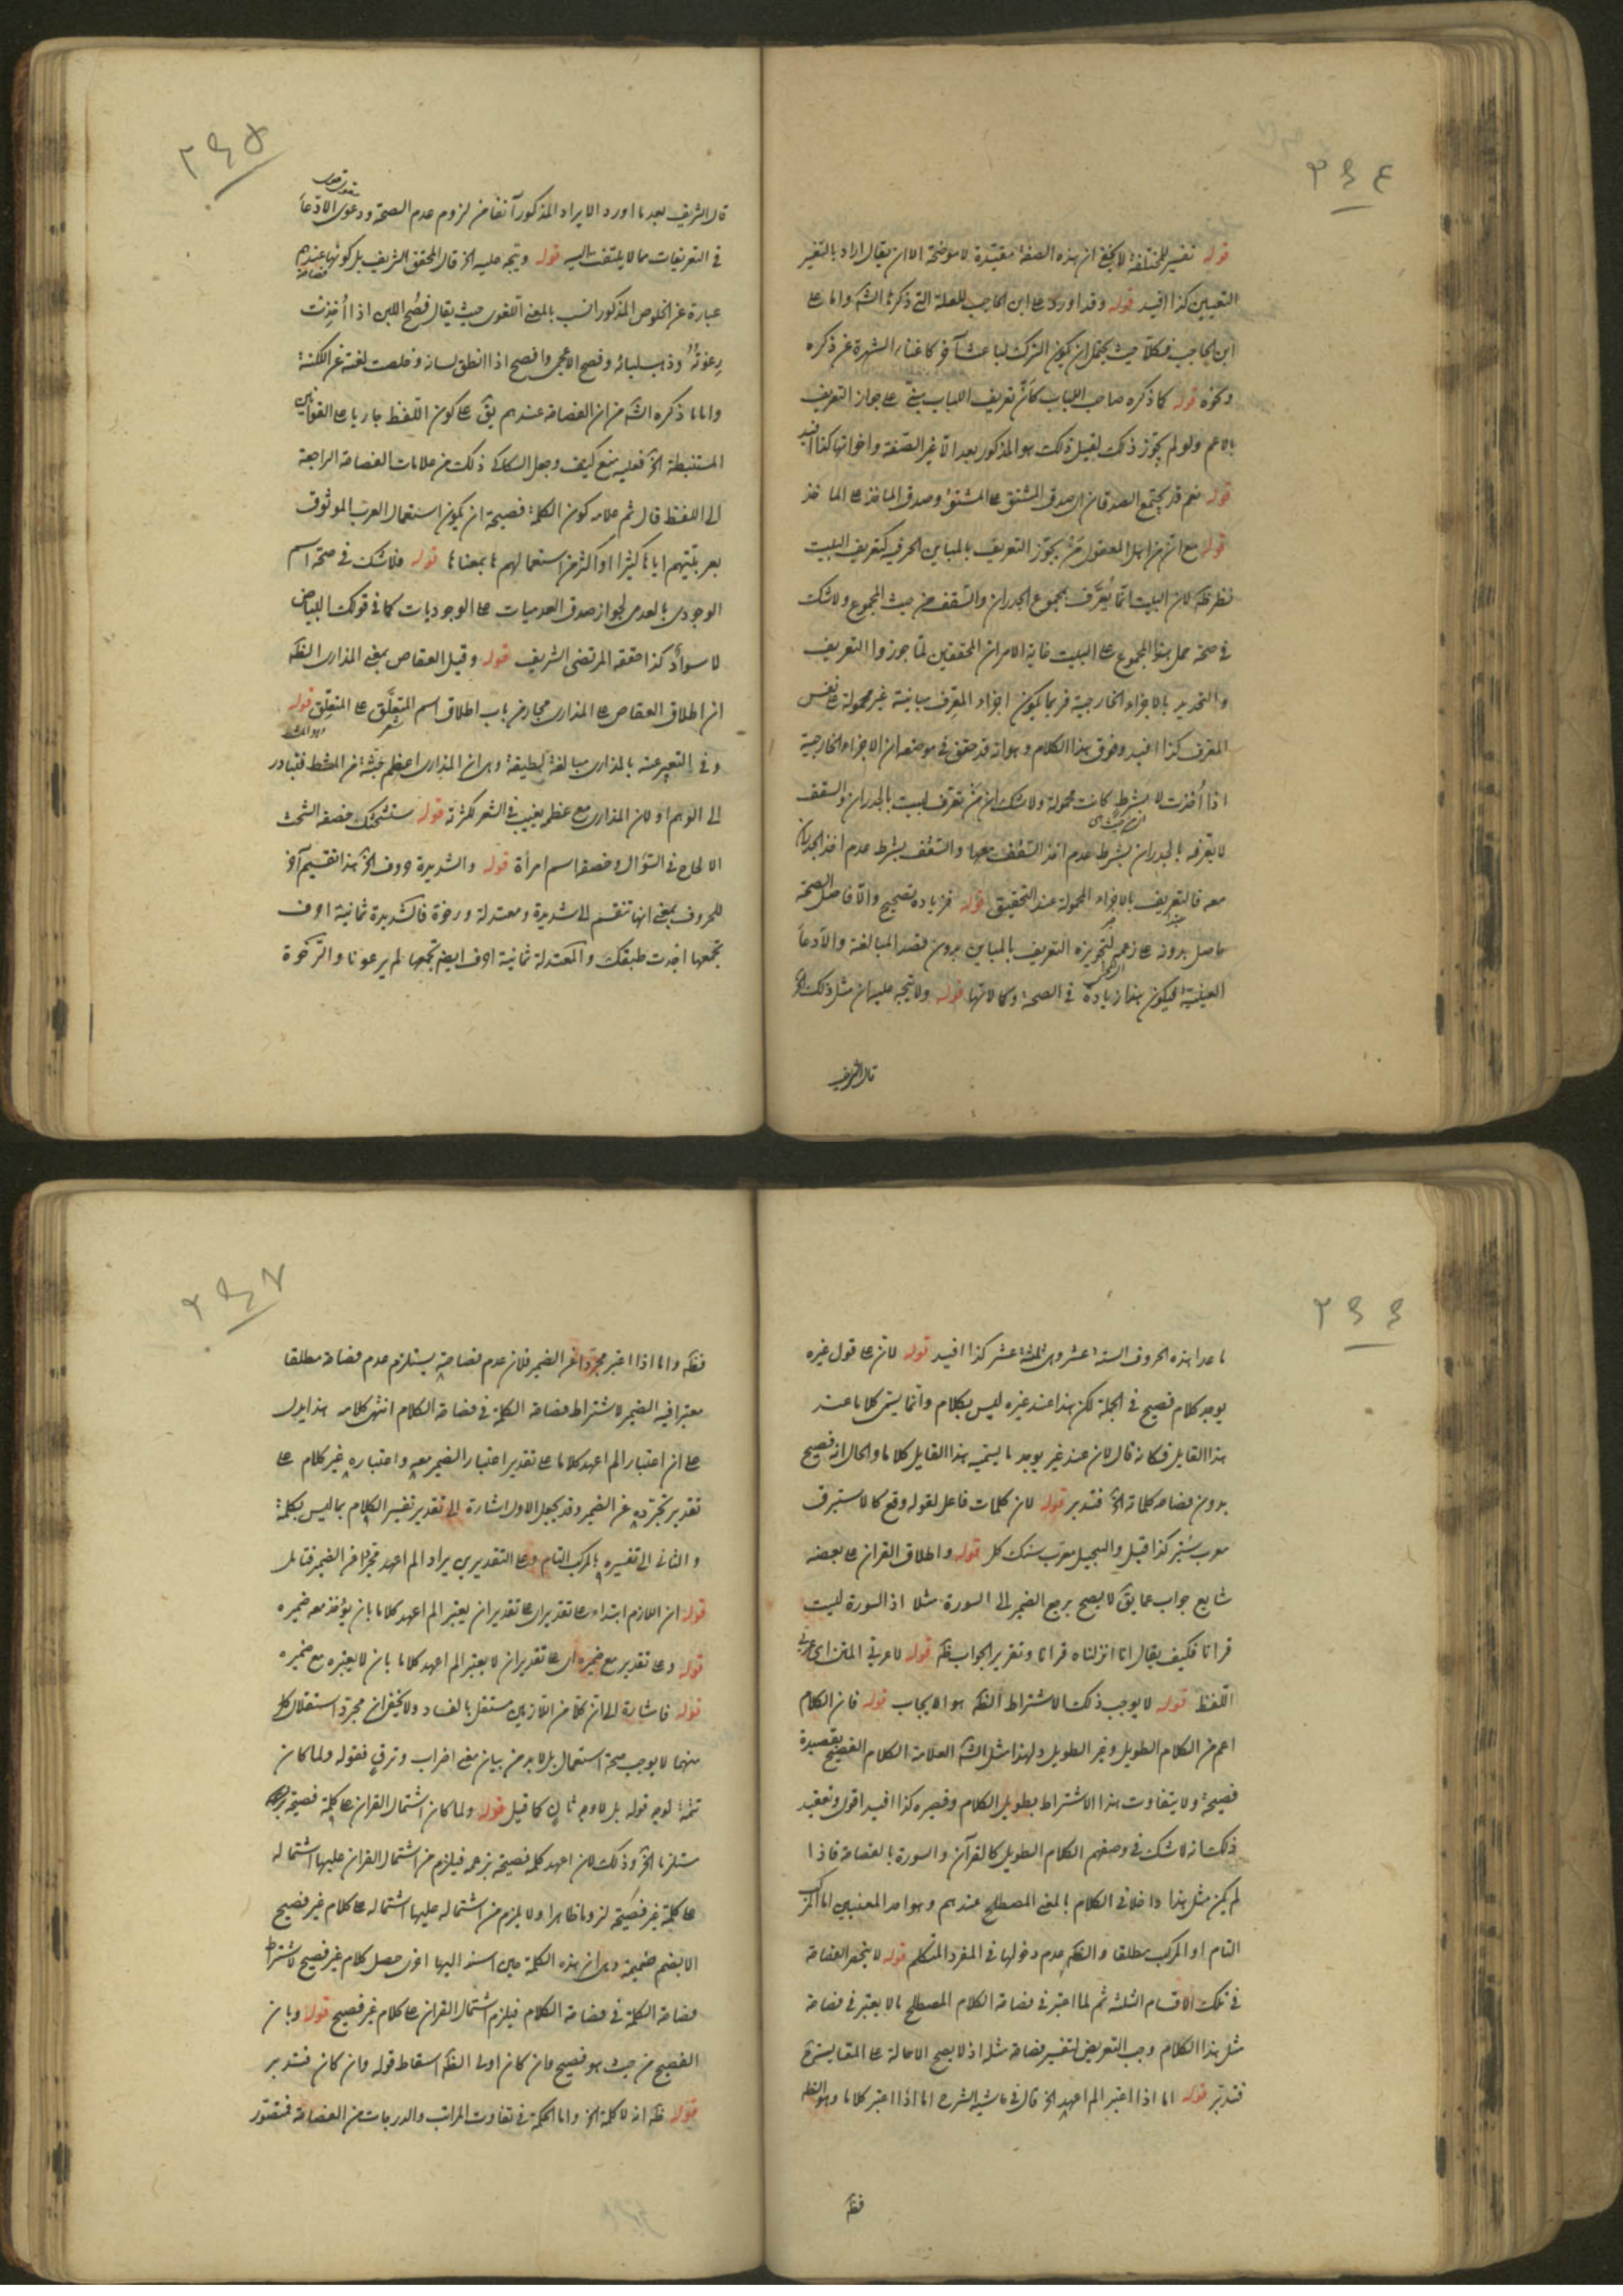 ٢٦٤
قوله تفسير للمختلفة لا يخفى ان هذه الصفة مقيدة لا موضحة الا ان يقال اراد بالتفسير
التعيين كذا افيد قوله وقد اورد على ابن الحاجب للعلة التي ذكره الش واما على
ابن الحاجب فكلا حيث يحتمل ان يكون الترك لباعث آخر كاغناء الشهرة عن ذكره
ونحوه قوله كما ذكره صاحب اللباب كأن تعريف اللباب مبني على جواز التعريف
بالاعم ولو لم يجوز ذلك لقيل ذلك هو المذكور بعد الا غير الصفة واخواتها كذا افيد
قوله نعم قد يجتمع الصدقان اي صدق المشتق على المشتق وصدق الماخذ على الماخذ
قوله مع ان من اهل المعقول من يجوز التعريف بالمباين الحرف كتعريف البيت
نظر ظ لان البيت انما يُعرَّف بمجموع الجدران والسقف من حيث المجموع ولا شك
في صحة حمل هذا المجموع على البيت غاية الامر ان المحققين لما جوزوا التعريف
والتحديد بالاجزاء الخارجية فربما يكون اجزاء المعرف مباينة غير محمولة على نفس
المعرف كذا افيد وفوق هذا الكلام وهو انه قد حقق في موضعه ان الاجزاء الخارجية
اذا اُخذت لا بشرط كانت محمولة ولا شك ان من تعرف البيت بالجدران والسقف
لا يعرفه بالجدران بشرط عدم اخذ السقف معها والسقف بشرط عدم اخذ الجدران
معه فالتعريف بالاجزاء المحمولة عند التحقيق قوله فزياده تصحيح والا فاصل الصحة
حاصل بدونه على زعمه لتجويزه التعريف بالمباين بدون قصد المبالغة والادعاء
العينية فيكون هذا زيادة في الصحة وكالاتها قوله ولا يتجه عليه ان مثل ذلك الخ
قال الشريف
٢٦٥
قال الشريف بعد ما اورد الايراد المذكور آنفا من لزوم عدم الصحة ودعوى الادعاء
في التعريفات مما لا يلتفت اليه قوله ويتجه عليه الخ قال المحقق الشريف بل كونها عندهم
عبارة عن الخلوص المذكور انسب بالمعنى اللغوي حيث يقال فصُح اللبن اذا اُخِذت
رِغوتُه وذهب لبائه وفصح الاعجمي وافصح اذا انطلق لسانه وخلصت لغته عن اللكنة
واما ما ذكره الش من ان الفصاحة عندهم يق على كون اللفظ جاريا على القوانين
المستنبطة الخ فعليه منع كيف وجعل السكاكي ذلك من علامات الفصاحة الراجعة
الى اللفظ قال ثم علامة كون الكلمة فصيحة ان يكون استعمال العرب الموثوق
بعربيتهم اياها كثيرا او اكثر من استعمالهم ما بمعناها قوله فلا شك في صحة اسم
الوجودى بالعدمى لجواز صدق العدميات على الوجوديات كما في قولك البياض
لا سوادٌ كذا حققه المرتضى الشريف قوله وقيل العقاص بمعنى المدارى الظ
ان اطلاق العقاص على المدارى مجاز من باب اطلاق اسم المتعلَّق على المتعلِّق قوله
وفي التعبير عنه بالمدارى مبالغة لطيفة وهى ان المدارى اعظم جثة من المشط فتبادر
الى الوهم او لان المدارى مع عظمه يغيب في الشعر لكثرته قوله ستشحتك خصفة الشحث
الالحاح في السؤال وخصفة اسم امرأة قوله والشديدة حروف الخ هذا تقسيم آخر
للحروف بمعنى انها تنقسم الى شديدة ومعتدلة ورخوة فالشديدة ثمانية احرف
تجمعها اجدت طبقك والمعتدلة ثمانية احرف ايضا تجمعها لم يرعونا والرخوة
٢٦٦
ما عدا هذه الحروف الستة عشر وهى ثلثة عشر كذا افيد قوله لان على قول غيره
يوجد كلام فصيح في الجملة لكن هذا عند غيره ليس بكلام وانما يسمى كلاما عند
هذا القايل فكانه قال لان عند غير يوجد ما يسميه هذا القايل كلاما والحال انه فصيح
بدون فصاحة كلماته الخ فتدبر قوله لان كلمات فاعل لقوله وقع كالاستبرق
معرب ستبر كذا قيل والسجيل معرب سنك كل قوله واطلاق القرآن على بعضه
شايع جواب عما يق لا يصح يرجع الضمير الى السورة مثلا اذ السورة ليست
قرآنا فكيف يقال انا انزلناه قرآنا وتقرير الجواب ظ قوله لا عربي المتن اى عربي
اللفظ قوله لا يوجب ذلك الاشتراط الظ هو الايجاب قوله فان الكلام
اعم من الكلام الطويل وغير الطويل ولهذا مثل الش العلامة الكلام الفصيح بقصيدة
فصيحة ولا يتفاوت هذا الاشتراط بطويل الكلام وقصيره كذا افيد اقول وتعقيد
ذلك انه لا شك في وصفهم الكلام الطويل كالقرآن والسورة بالفصاحة فاذا
لم يكن مثل هذا داخلا في الكلام بالمعنى المصطلح عندهم وهو احد المعنيين اما المركب
التام او المركب مطلقا والظ عدم دخولها في المفرد المتكلم قوله لا ينحصر الفصاحة
في تلك الاقسام الثلثة ثم لما اعتبر في فصاحة الكلام المصطلح ما لا يعتبر في فصاحة
مثل هذا الكلام وجب التعريض لتفسير فصاحة مثله اذ لا يصح الاحالة على المقايسة
فتدبر قوله اما اذا اعتبر الم اعهد الخ قال في حاشية الشرح اما اذا اعتبر كلاما وهو الظ
فظ
٢٦٧
فظ واما اذا اعتبر مجردا عن الضمير فلان عدم فصاحته يستلزم عدم فصاحة مطلقا
معتبرا فيه الضمير لاشتراط فصاحة الكلمة في فصاحة الكلام انتهى كلامه هذا يدل
على ان اعتبار الم اعهد كلاما على تقدير اعتبار الضمير معه واعتباره غير كلام على
تقدير تجرده عن الضمير وقد يجعل الاول اشارة الى تقدير تفسير الكلام بما ليس بكلمة
والثاني الى تفسيره بالمركب التام وعلى التقديرين يراد الم اعهد مجردا عن الضمير فتامل
قوله ان اللازم ابتداء على تقدير اى على تقدير ان يعتبر الم اعهد كلاما بان يؤخذ معه ضميره
قوله وعلى تقدير مع ضميره اى على تقدير ان لا يعتبر الم اعهد كلاما بان لا يعتبره مع ضميره
قوله فاشارة الى ان كلا من اللازمين مستقل بالفساد ولا يخفى ان مجرد استقلال كل
منهما لا يوجب صحة استعمال بل لا بد من بيان معنى اضراب وترقٍ فقوله ولما كان
تتمة لوجه قوله بل لا وجه ثانٍ كما قيل قوله ولما كان اشتمال القرآن على كلمة فصيحة
مستلزما الخ وذلك لان اعهد كلمة فصيحة بزعمه فيلزم من اشتمال القرآن عليها اشتماله
على كلمة غير فصيحة لزوما ظاهرا ولا يلزم من اشتماله عليها اشتماله على كلام غير فصيح
الا بضم ضميمة وهى ان هذه الكلمة حين اسند اليها اخرى حصل كلام غير فصيح لاشتراط
فصاحة الكلمة في فصاحة الكلام فيلزم اشتمال القرآن على كلام غير فصيح قوله وبان
الفصيح من حيث هو فصيح وان كان اولى الظ اسقاط قوله وان كان فتدبر
قوله ظ انه لا كلمة الخ واما الحكمة في تفاوت المراتب والدرجات من الفصاحة فتصور